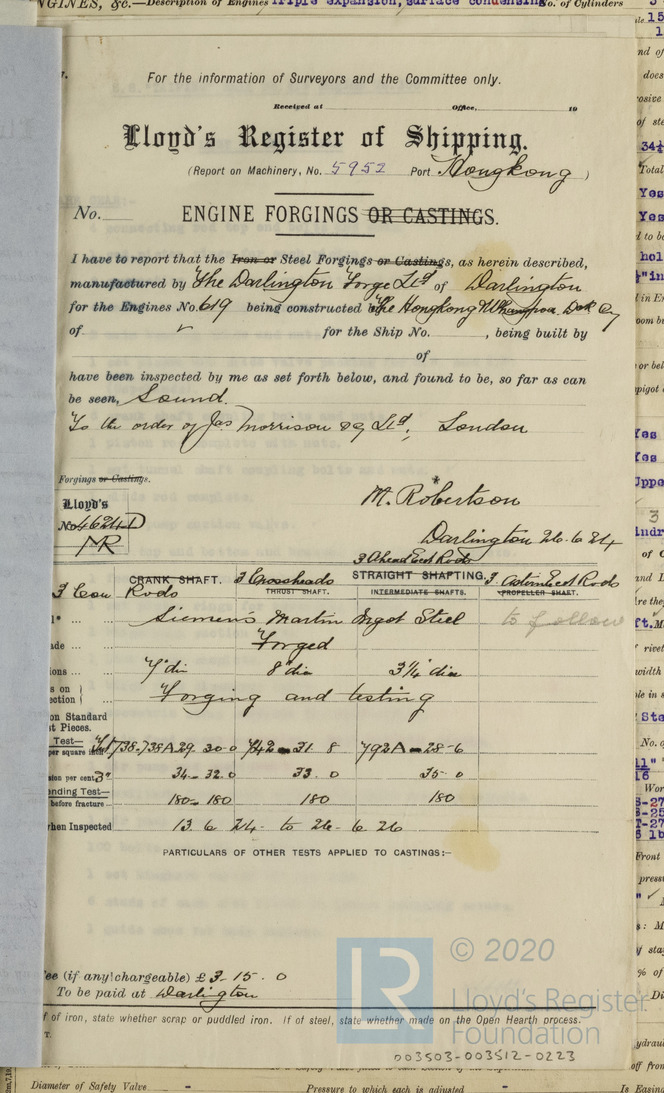 NGINES, &c.—Description of Engines Triple expansion, surface condensing No. of Cylinders 3
For the information of Surveyors and the Committee only.
Received at Office, 19
Lloyd's Register of Shipping.
(Report on Machinery, No. 5952 Port Hongkong )
No. ENGINE FORGINGS OR CASTINGS.
I have to report that the Iron or Steel Forgings or Castings, as herein described,
manufactured by The Darlington Forge Ltd of Darlington
for the Engines No. 619 being constructed by The Hongkong & Whampoa Dock Cy
of for the Ship No. , being built by
of
have been inspected by me as set forth below, and found to be, so far as can
be seen, Sound.
To the order of Jas Morrison & Co Ltd, London
Forgings or Castings.
Lloyd's
No 4624 D
MR
M. Robertson
Darlington 26.6.24
3 Ahead Ecct Rods
CRANK SHAFT. 3 Crossheads STRAIGHT SHAFTING. 3 Astern Ecct Rods
3 Con Rods THRUST SHAFT. INTERMEDIATE SHAFTS. PROPELLER SHAFT.
Siemens Martin Ingot Steel to follow
ade Forged
ions 7" dia 8" dia 3 1/4 dia
s on
ection Forging and testing
on Standard
t Pieces.
Test—
per square inch 738-738A 29. 30.0 742 - 31.8 792A - 28-6
sion per cent 3" 34 - 32.0 33.0 35.0
ending Test—
before fracture 180 - 180 180 180
hen Inspected 13.6.24. to 26.6.26
PARTICULARS OF OTHER TESTS APPLIED TO CASTINGS:—
ee (if any chargeable) £3.15.0
To be paid at Darlington
f of iron, state whether scrap or puddled iron. If of steel, state whether made on the Open Hearth process.
T.
© 2020
LR
Lloyd's Register
Foundation
003503-003512-0223
Diameter of Safety Valve - Pressure to which each is adjusted - Is Easing